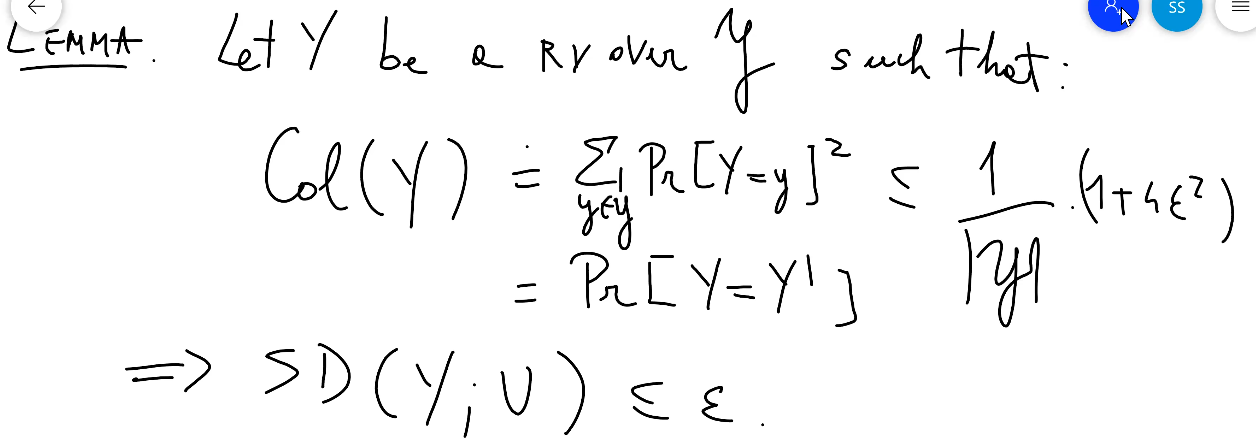 SS
LEMMA. Let Y be a RV over 𝒴 such that:
Col(Y) ≐ Σ_{y∈𝒴} Pr[Y=y]² ≤ 1/|𝒴| · (1+4ε²)
= Pr[Y=Y']
⟹ SD(Y; U) ≤ ε.